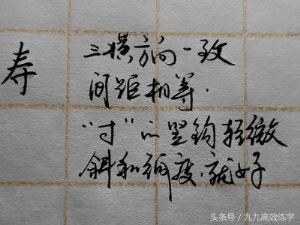 寿
三横方向一致
间距相等.
“寸”的竖钩轻微
斜和弧度.就好
头条号/九九高效练字